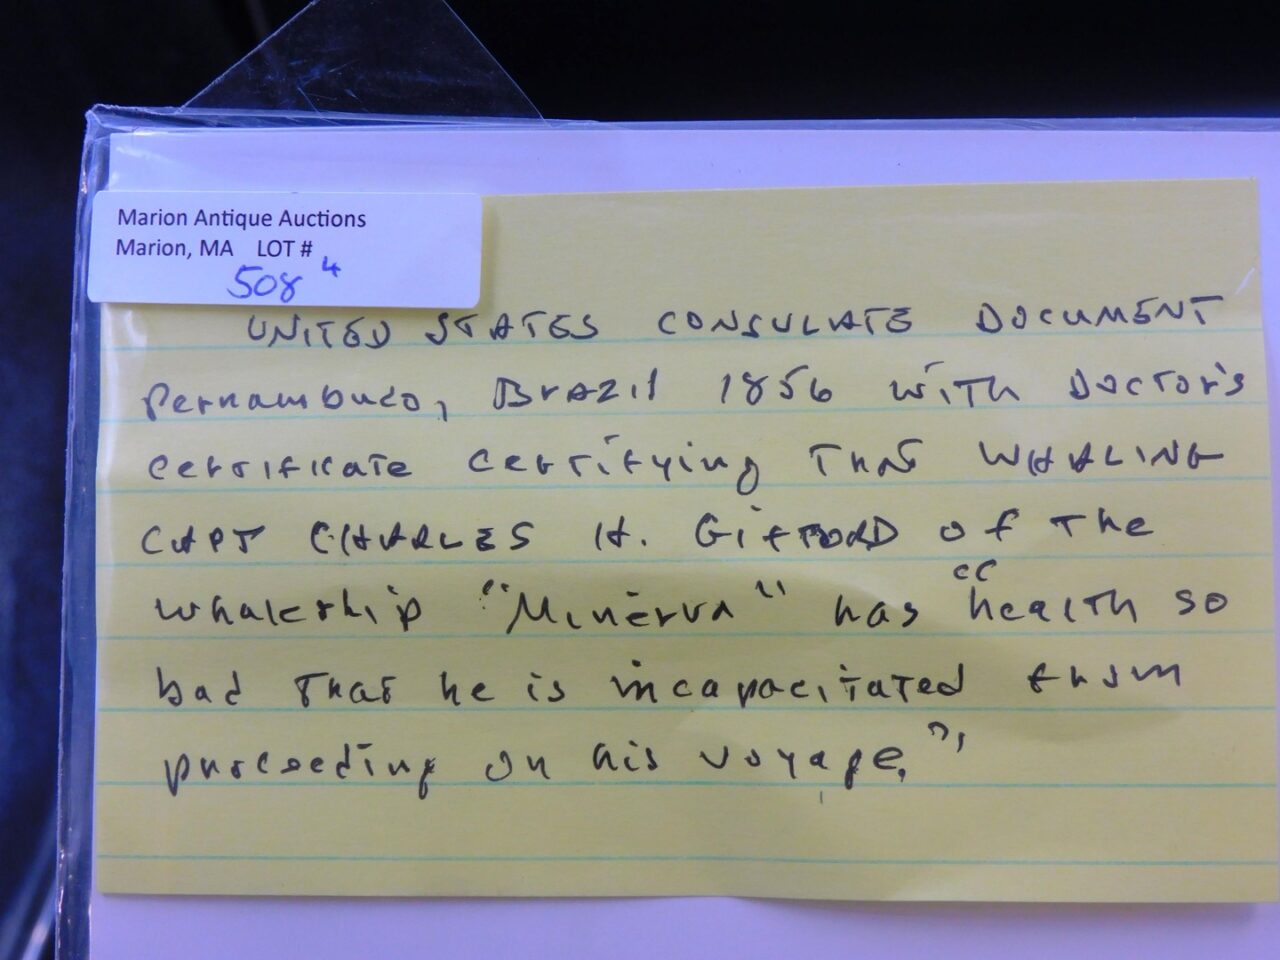 Marion Antique Auctions
Marion, MA LOT #
508 4
UNITED STATES CONSULATE DOCUMENT
Pernambuco, Brazil 1856 with Doctor's
certificate certifying that WHALING
CAPT CHARLES H. GIFFORD of the
whaleship "Minerva" has "health so
bad that he is incapacitated from
proceeding on his voyage."